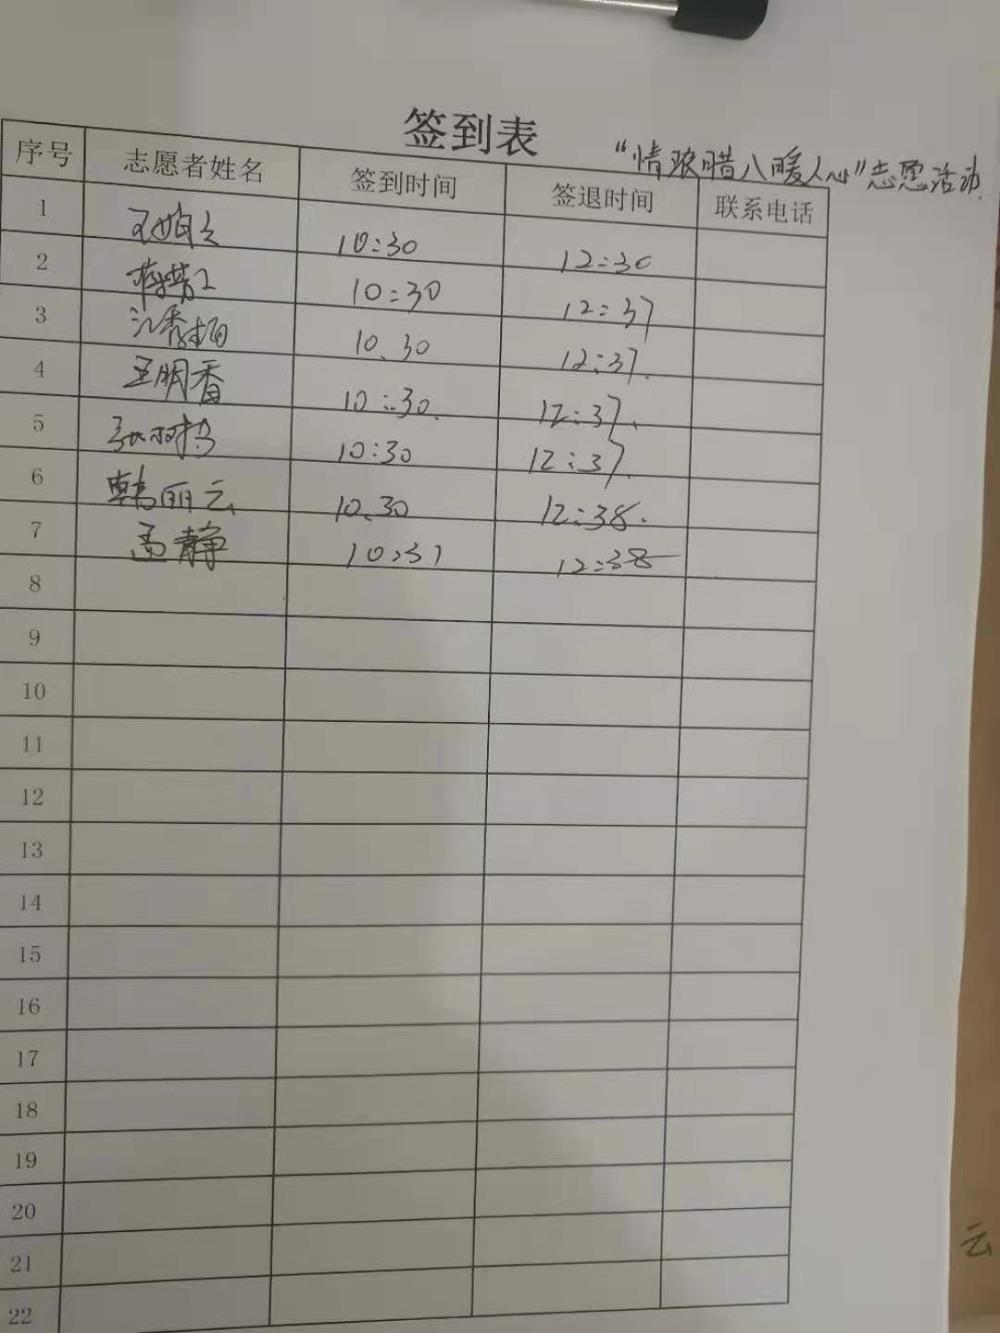 签到表
"情浓腊八暖人心"志愿活动
序号 志愿者姓名 签到时间 签退时间 联系电话
1 10:30 12:30
2 10:30 12:37
3 10.30 12:37.
4 王明香 10:30. 12:37.
5 10:30 12:37.
6 韩丽云 10.30 12:38.
7 孟静 10:31 12:38
8
9
10
11
12
13
14
15
16
17
18
19
20
21
22
云